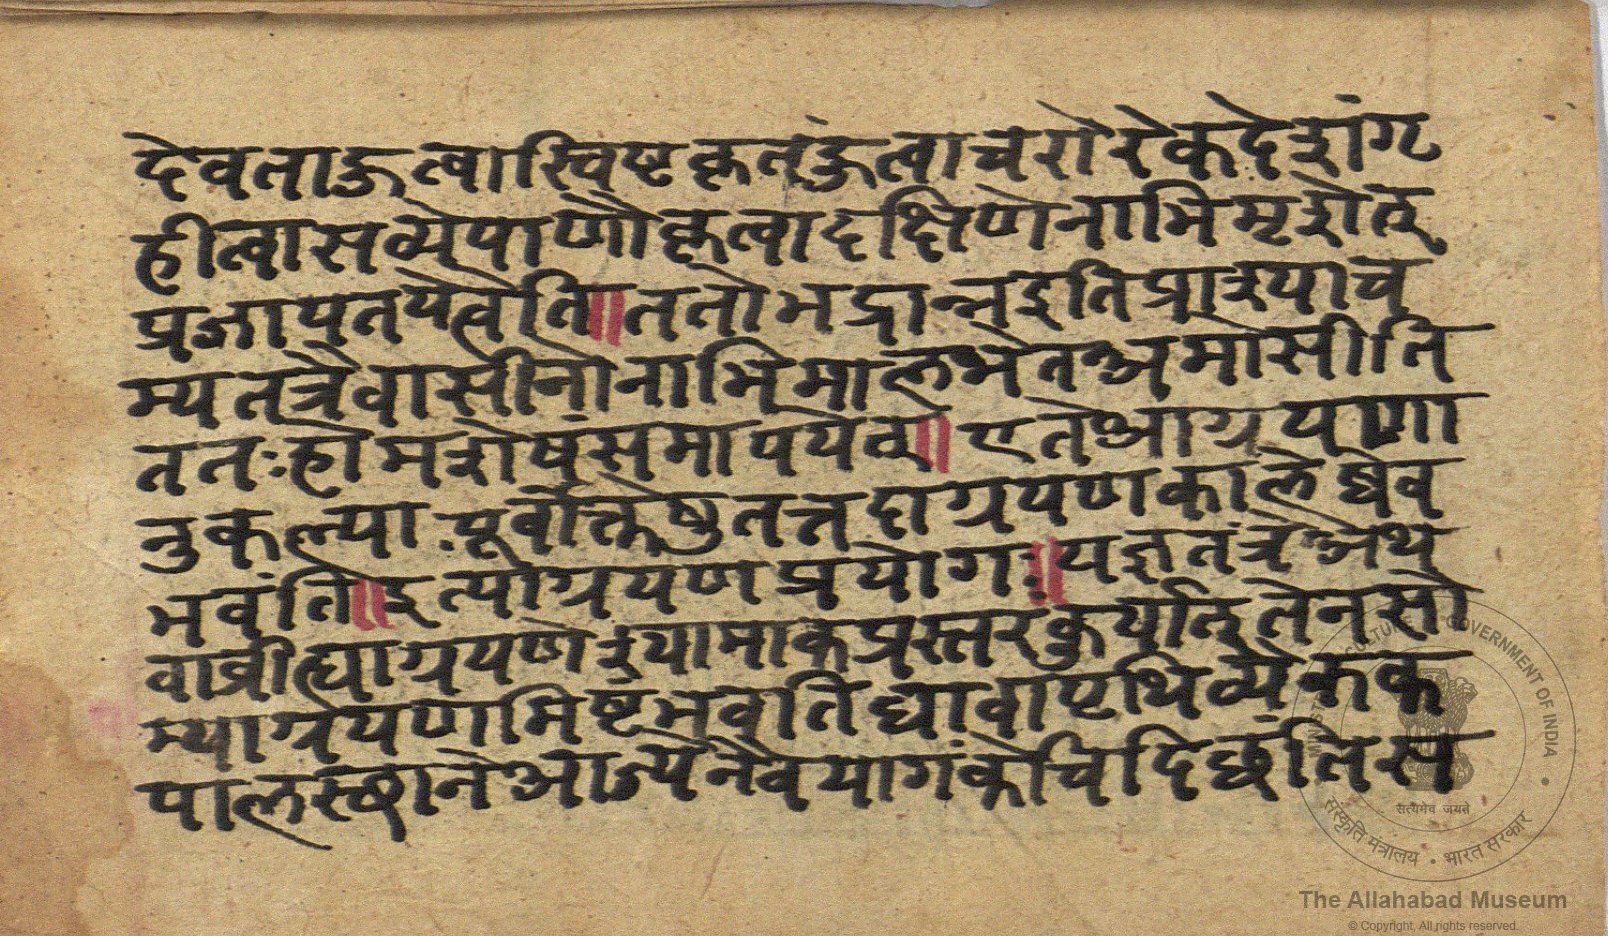 देवताहुत्वास्विष्टकृतंहुत्वाचरोरेकदेशंगृ
हीत्वासव्येपाणौकृत्वादक्षिणेनाभिमृशेत्
प्रजापतयेत्वेति॥ततोभद्रान्नइतिप्राश्याच
म्यतत्रैवासीनोनाभिमालभेतअमोसीति
ततःहोमशेषंसमापयेत्॥एतेआग्रयणा
नुकल्पाःपूर्वोक्तेषुतत्तदाग्रयणकालेष्वेव
भवंति॥इत्याग्रयणप्रयोगः॥यज्ञतंत्रेअथ
वाव्रीह्याग्रयणेश्यामाकप्रस्तरंकुर्यात्तेनसौ
म्याग्रयणमिष्टंभवतिद्यावापृथिव्येकक
पालस्थानेआज्येनैवयागंकेचिदिछंतिस
The Allahabad Museum
© Copyright, All rights reserved.
MINISTRY OF CULTURE GOVERNMENT OF INDIA
सत्यमेव जयते
संस्कृति मंत्रालय • भारत सरकार